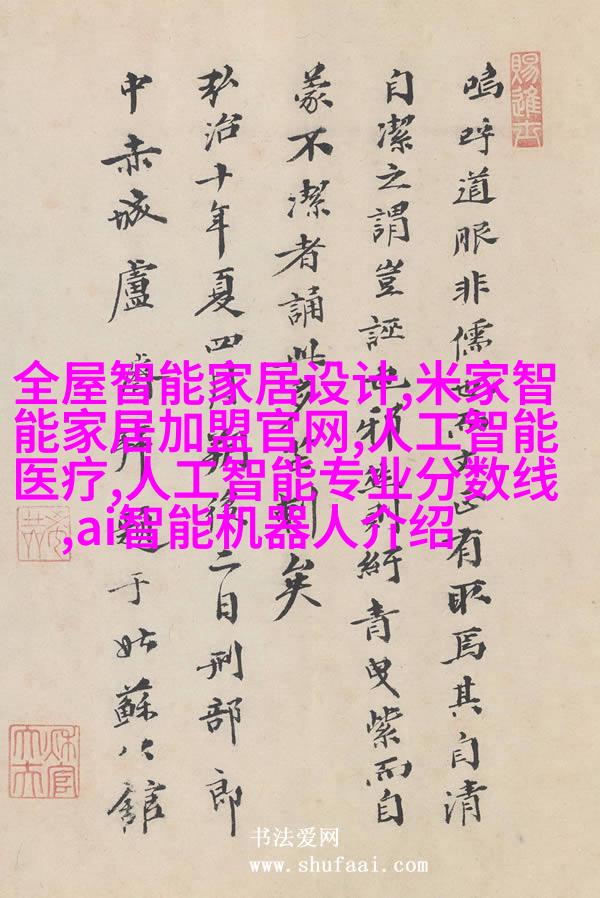 嗚呼道服非儒也而文正有取焉其自清
自潔之謂豈誣也邪紆青曳紫而自
蒙不潔者誦此矣
弘治十年夏四月朔後二日刑部郎
中赤城盧題于姑蘇公館
賜進士
全屋智能家居设计,米家智
能家居加盟官网,人工智能
医疗,人工智能专业分数线
,ai智能机器人介绍
书法爱网
www.shufaai.com